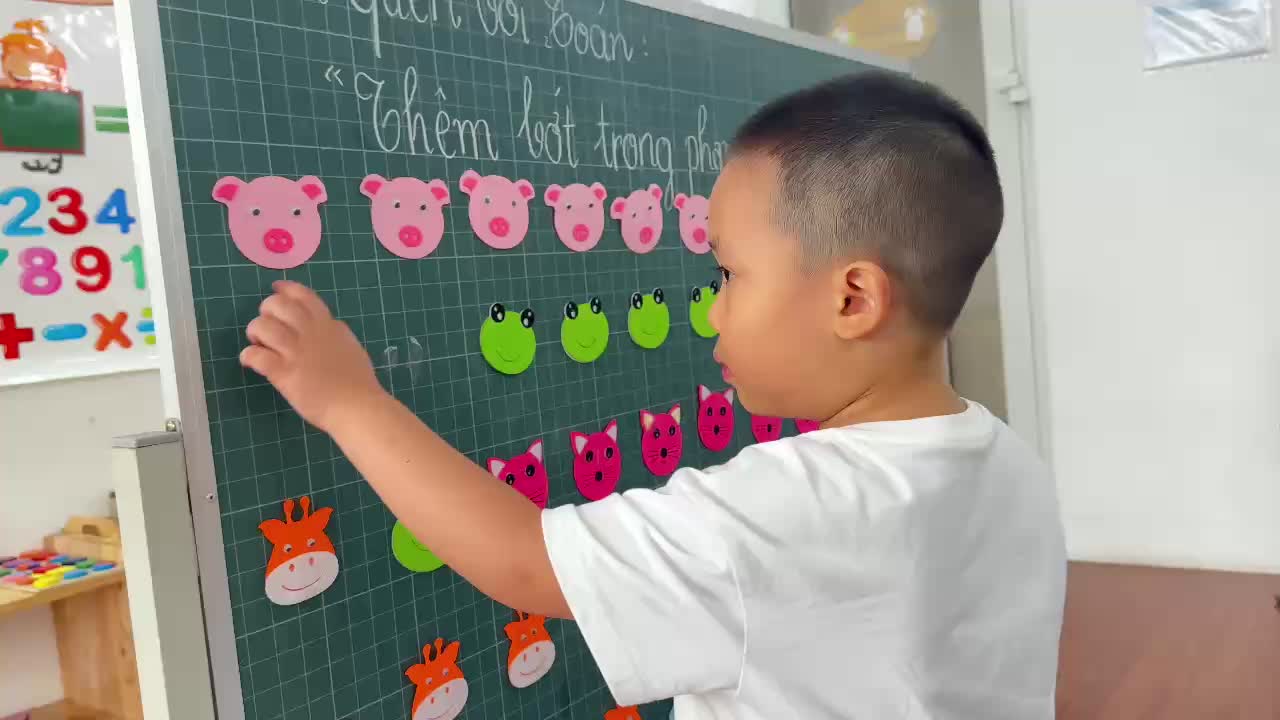 quen với Toán:
"Thêm bớt trong phạm
234
8 9 1
+ - × ÷